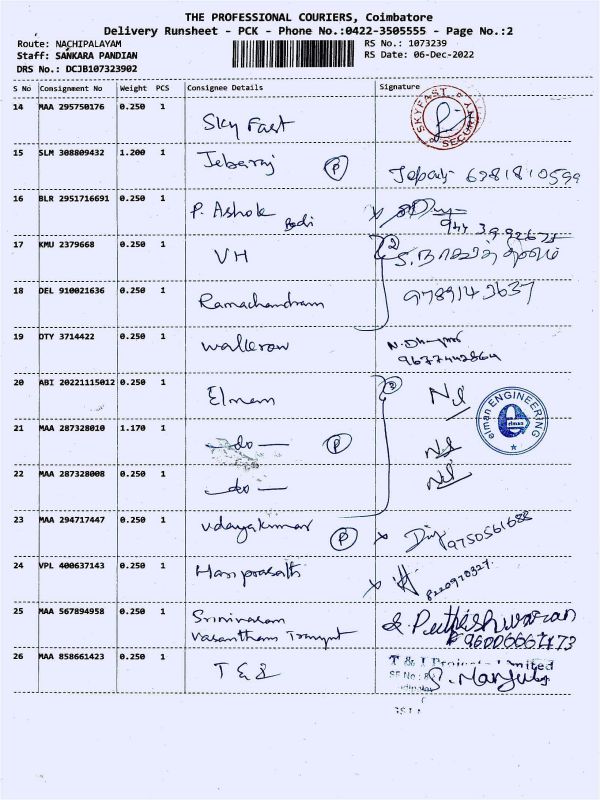 THE PROFESSIONAL COURIERS, Coimbatore
Delivery Runsheet - PCK - Phone No.:0422-3505555 - Page No.:2
Route: NACHIPALAYAM
RS No.: 1073239
Staff: SANKARA PANDIAN
RS Date: 06-Dec-2022
DRS No.: DCJB107323902
S No Consignment No Weight PCS Consignee Details Signature
14 MAA 295750176 0.250 1 Sky Fast SKYFAST SECURITY
15 SLM 308809432 1.200 1 Jebaraj P
16 BLR 2951716691 0.250 1 P. Ashok
17 KMU 2379668 0.250 1 VH 2
18 DEL 910021636 0.250 1 Ramachandram 9789143637
19 DTY 3714422 0.250 1 walkerow
9677442864
20 ABI 20221115012 0.250 1 Elman elman ENGINEERING
21 MAA 287328010 1.170 1 -do- P
22 MAA 287328008 0.250 1 -do-
23 MAA 294717447 0.250 1 Udayakumar P 9750561688
24 VPL 400637143 0.250 1 Hariprasath
25 MAA 567894958 0.250 1 Srinivasan
Vasantham
26 MAA 858661423 0.250 1 T & I T & I
S. Manju